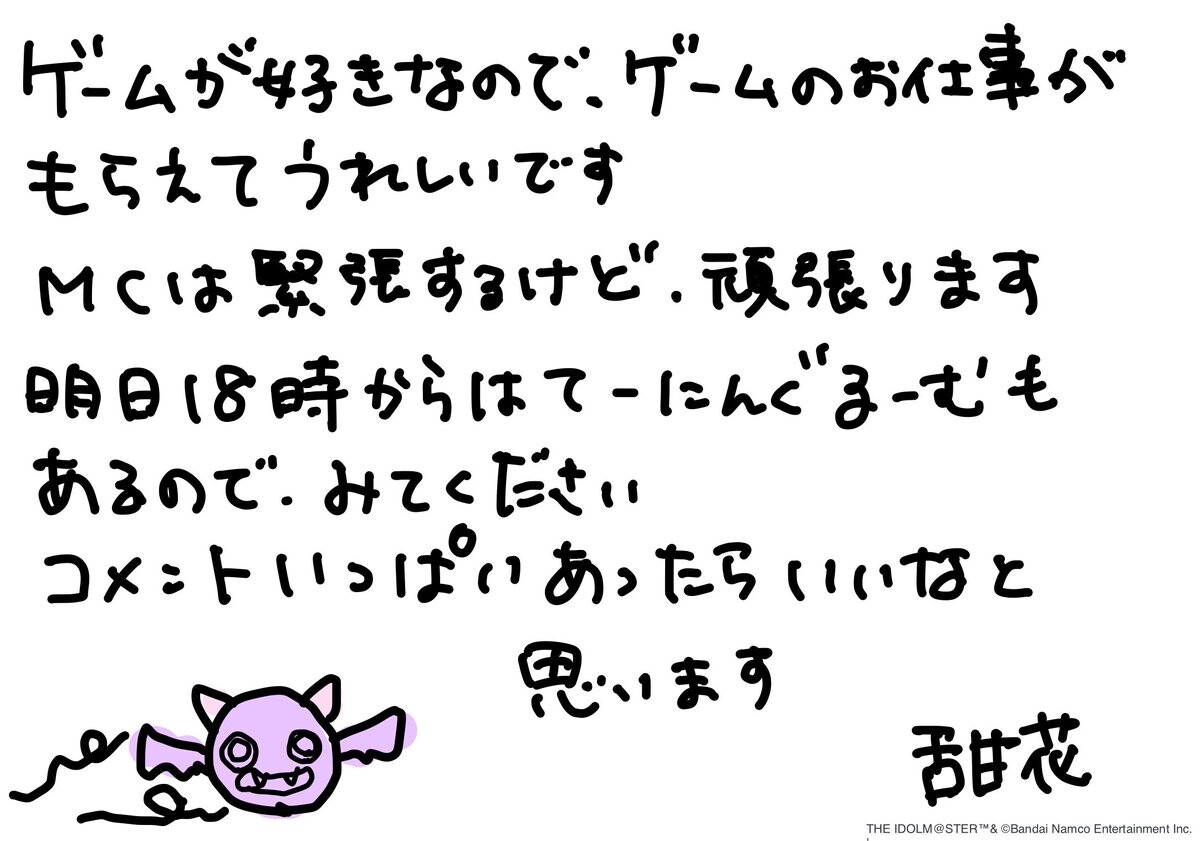 ゲームが好きなので、ゲームのお仕事が
もらえてうれしいです
MCは緊張するけど、頑張ります
明日18時からはてーにんぐるーむも
あるので、みてください
コメントいっぱいあったらいいなと
思います
甜花
THE IDOLM@STER™& ©Bandai Namco Entertainment Inc.